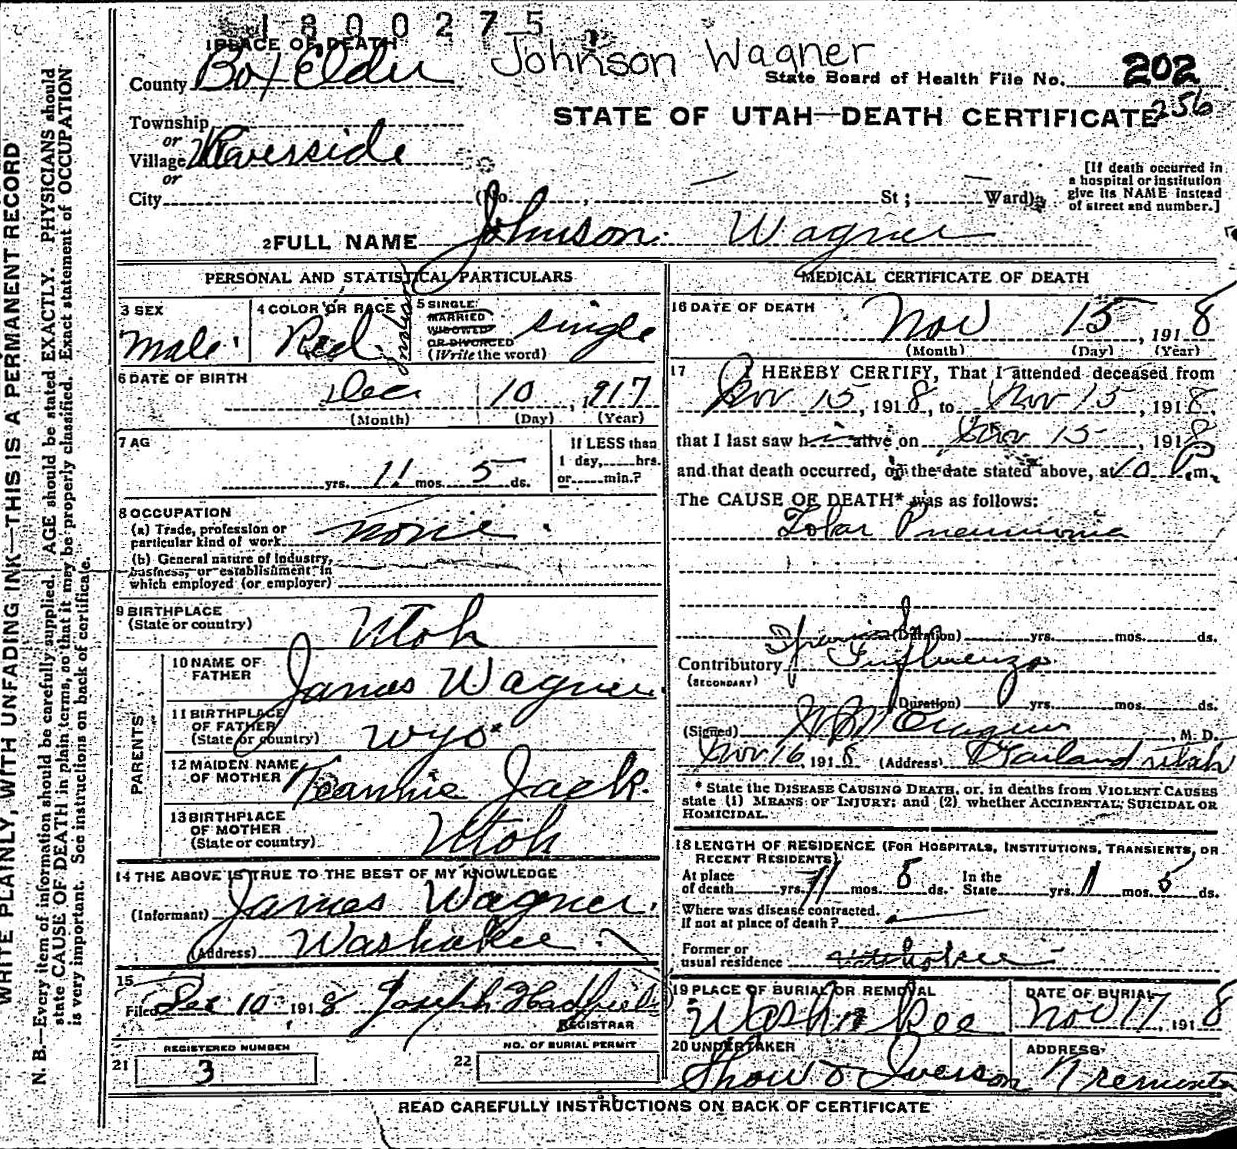 1800275
Johnson Wagner
1 PLACE OF DEATH
County Box Elder
State Board of Health File No. 202
256
STATE OF UTAH—DEATH CERTIFICATE
Township
or
Village Riverside
or
City (No. , St; Ward)
[If death occurred in
a hospital or institution
give its NAME instead
of street and number.]
2 FULL NAME Johnson Wagner
PERSONAL AND STATISTICAL PARTICULARS
3 SEX
Male
4 COLOR OR RACE
Red
5 SINGLE
MARRIED
WIDOWED
OR DIVORCED
(Write the word)
single
6 DATE OF BIRTH
Dec 10, 917
(Month) (Day) (Year)
7 AG
yrs. 11 mos. 5 ds.
If LESS than
1 day, hrs.
or min.?
8 OCCUPATION
(a) Trade, profession or
particular kind of work none
(b) General nature of industry,
business, or establishment in
which employed (or employer)
9 BIRTHPLACE
(State or country) Utah
PARENTS
10 NAME OF
FATHER James Wagner
11 BIRTHPLACE
OF FATHER
(State or country) Wyo
12 MAIDEN NAME
OF MOTHER Teannie Jack
13 BIRTHPLACE
OF MOTHER
(State or country) Utah
14 THE ABOVE IS TRUE TO THE BEST OF MY KNOWLEDGE
(Informant) James Wagner
(Address) Washakee
15
Filed Dec 10 1918 Joseph Hadfield
REGISTRAR
REGISTERED NUMBER
21 3
NO. OF BURIAL PERMIT
22
MEDICAL CERTIFICATE OF DEATH
16 DATE OF DEATH
Nov 15, 1918
(Month) (Day) (Year)
17 I HEREBY CERTIFY, That I attended deceased from
Nov 15, 1918, to Nov 15, 1918,
that I last saw h alive on Nov 15, 1918
and that death occurred, on the date stated above, at 10 P.m.
The CAUSE OF DEATH* was as follows:
Lobar Pneumonia
(Duration) yrs. mos. ds.
Contributory Spanish Influenza
(SECONDARY)
(Duration) yrs. mos. ds.
(Signed) M. D.
Nov 16, 1918 (Address) Garland Utah
* State the DISEASE CAUSING DEATH, or, in deaths from VIOLENT CAUSES
state (1) MEANS OF INJURY; and (2) whether ACCIDENTAL, SUICIDAL OR
HOMICIDAL.
18 LENGTH OF RESIDENCE (FOR HOSPITALS, INSTITUTIONS, TRANSIENTS, OR
RECENT RESIDENTS)
At place
of death yrs. 11 mos. 5 ds.
In the
State yrs. 11 mos. 5 ds.
Where was disease contracted.
if not at place of death?
Former or
usual residence
19 PLACE OF BURIAL OR REMOVAL
Washakee
DATE OF BURIAL
Nov 17, 1918
20 UNDERTAKER
Shaw & Iverson
ADDRESS
Tremonton
READ CAREFULLY INSTRUCTIONS ON BACK OF CERTIFICATE
WRITE PLAINLY, WITH UNFADING INK—THIS IS A PERMANENT RECORD
N. B.—Every item of information should be carefully supplied. AGE should be stated EXACTLY. PHYSICIANS should
state CAUSE OF DEATH in plain terms, so that it may be properly classified. Exact statement of OCCUPATION
is very important. See instructions on back of certificate.